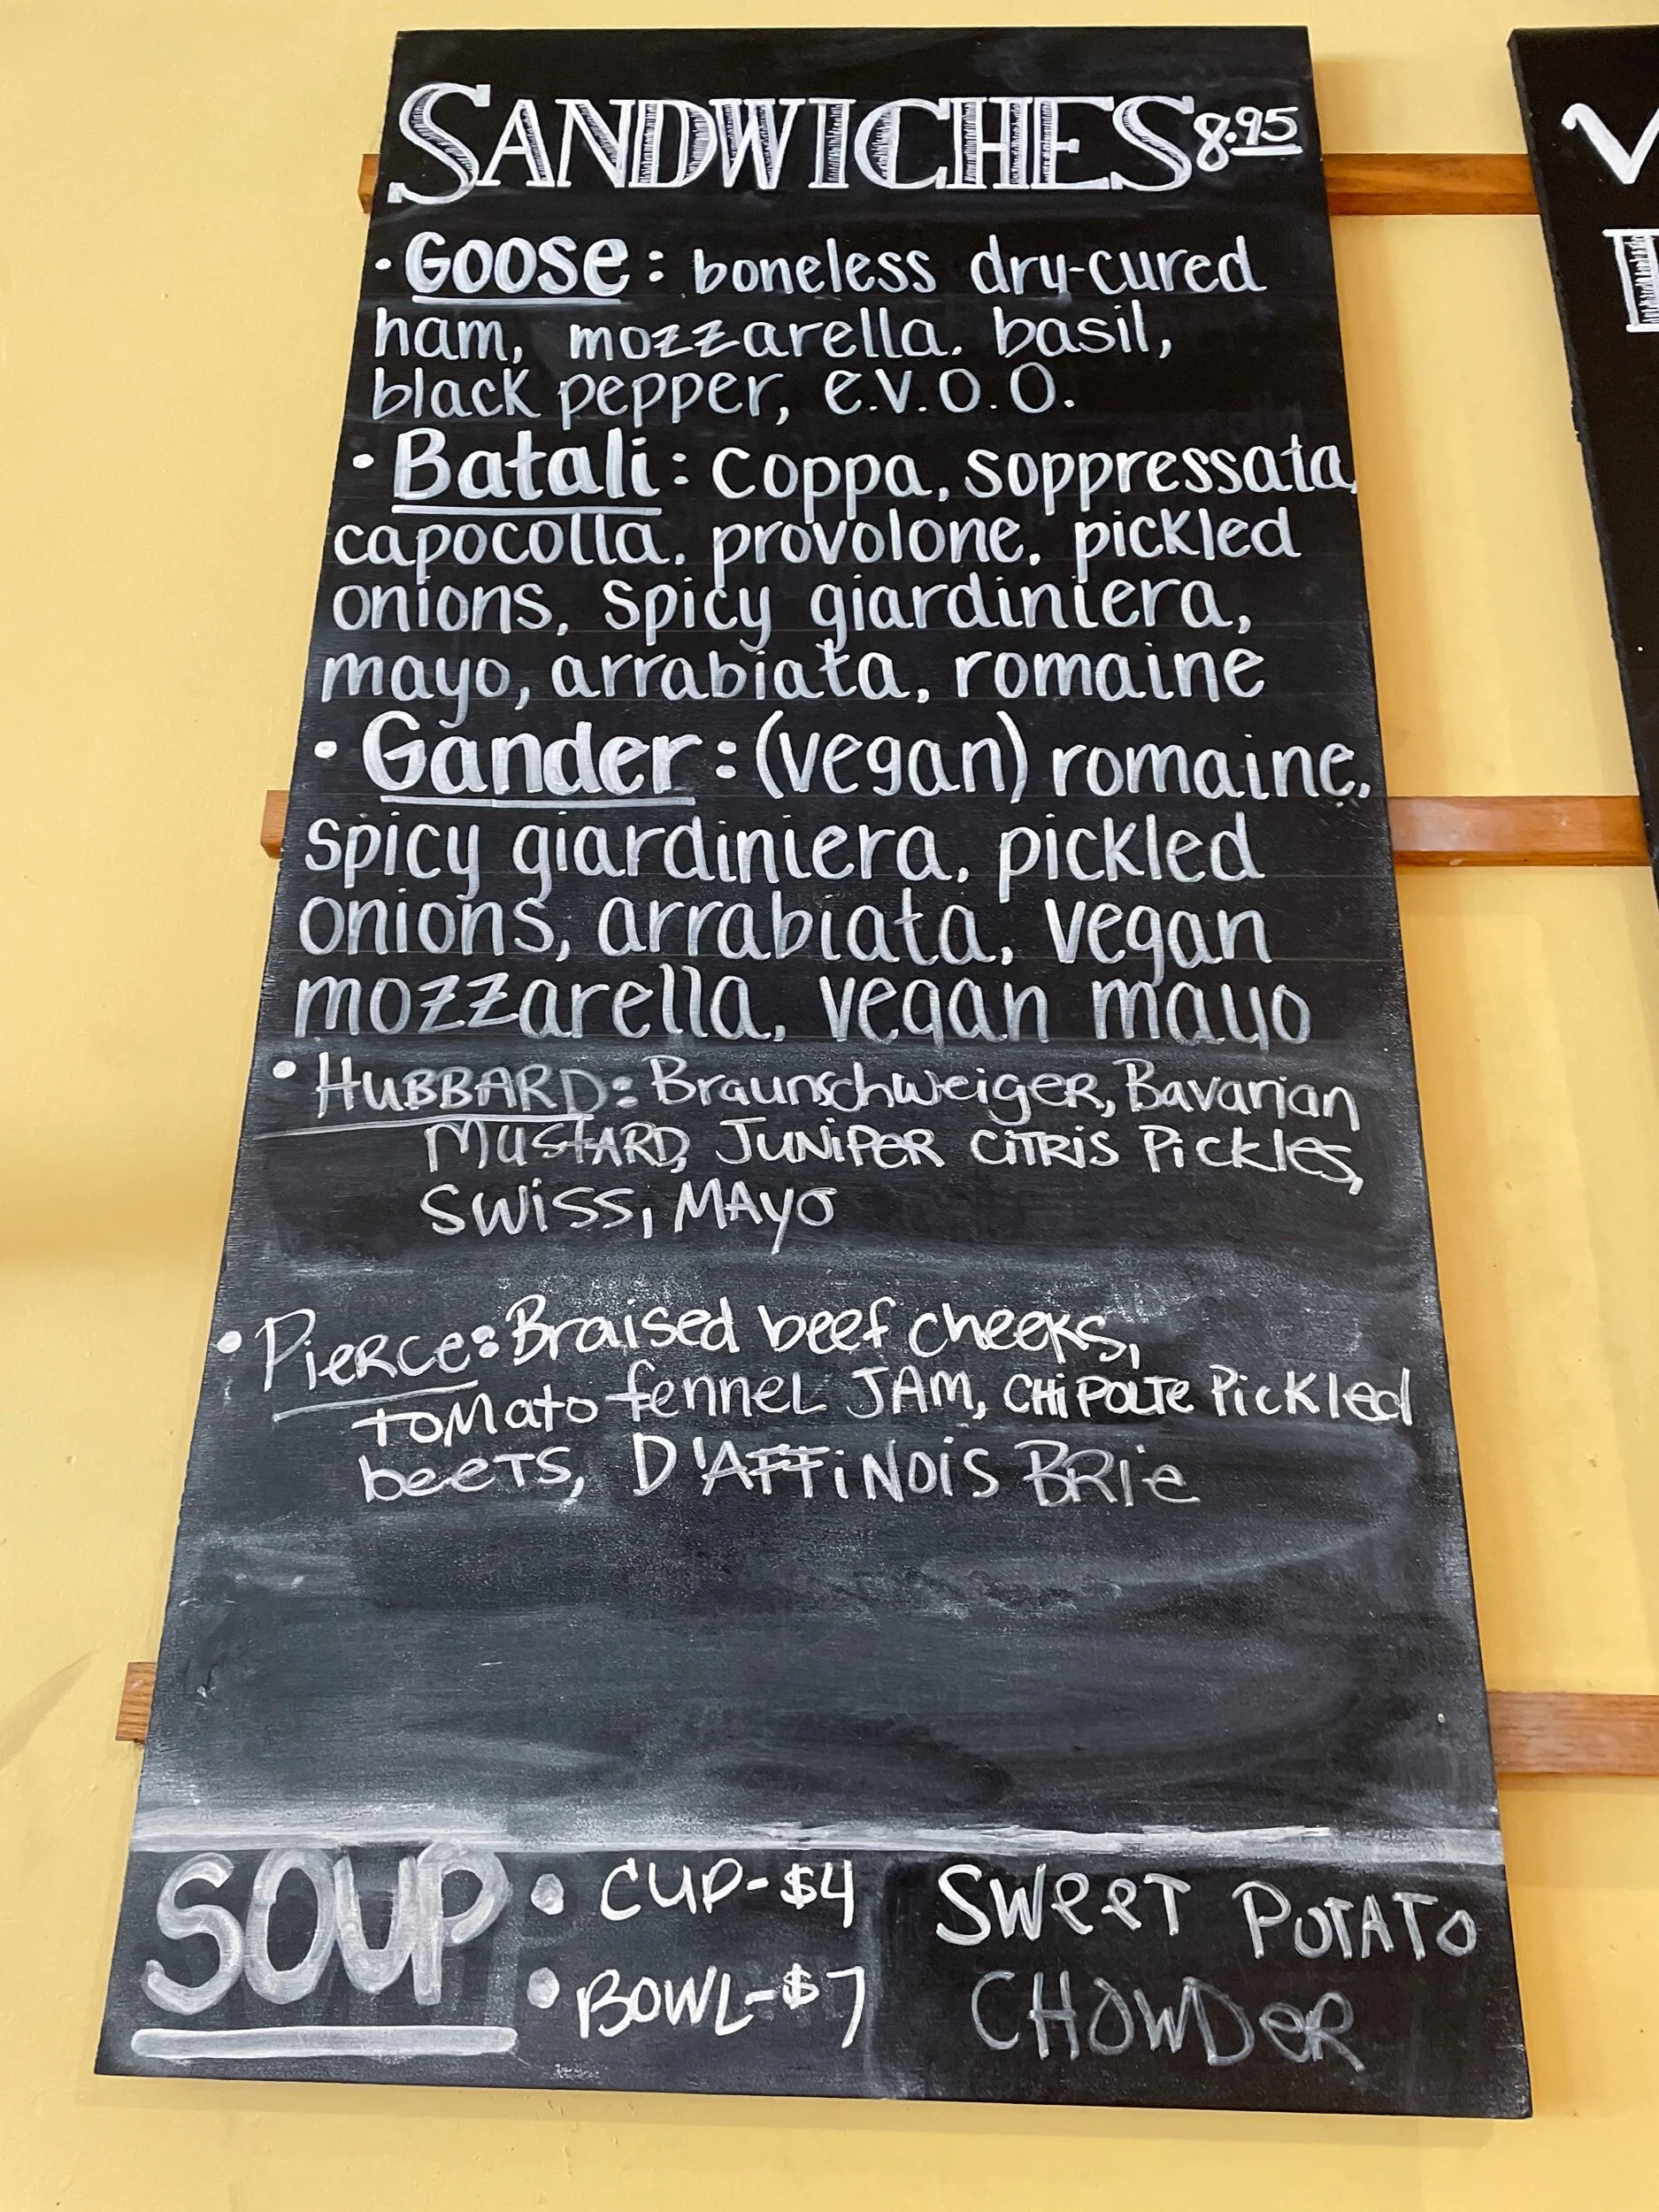 SANDWICHES 8.95
• Goose: boneless dry-cured
ham, mozzarella. basil,
black pepper, e.v.o.o.
• Batali: coppa, soppressata,
capocolla, provolone, pickled
onions, spicy giardiniera,
mayo, arrabiata, romaine
• Gander: (vegan) romaine,
spicy giardiniera, pickled
onions, arrabiata, vegan
mozzarella, vegan mayo
• HUBBARD: Braunschweiger, Bavarian
MUSTARD, JUNIPER CITRIS Pickles,
SWISS, MAYO
• PIERCE: Braised beef cheeks,
TOMATO fennel JAM, CHIPOLTE Pickled
beets, D'AFFINOIS BRIE
SOUP • CUP-$4 SWEET POTATO
• BOWL-$7 CHOWDER